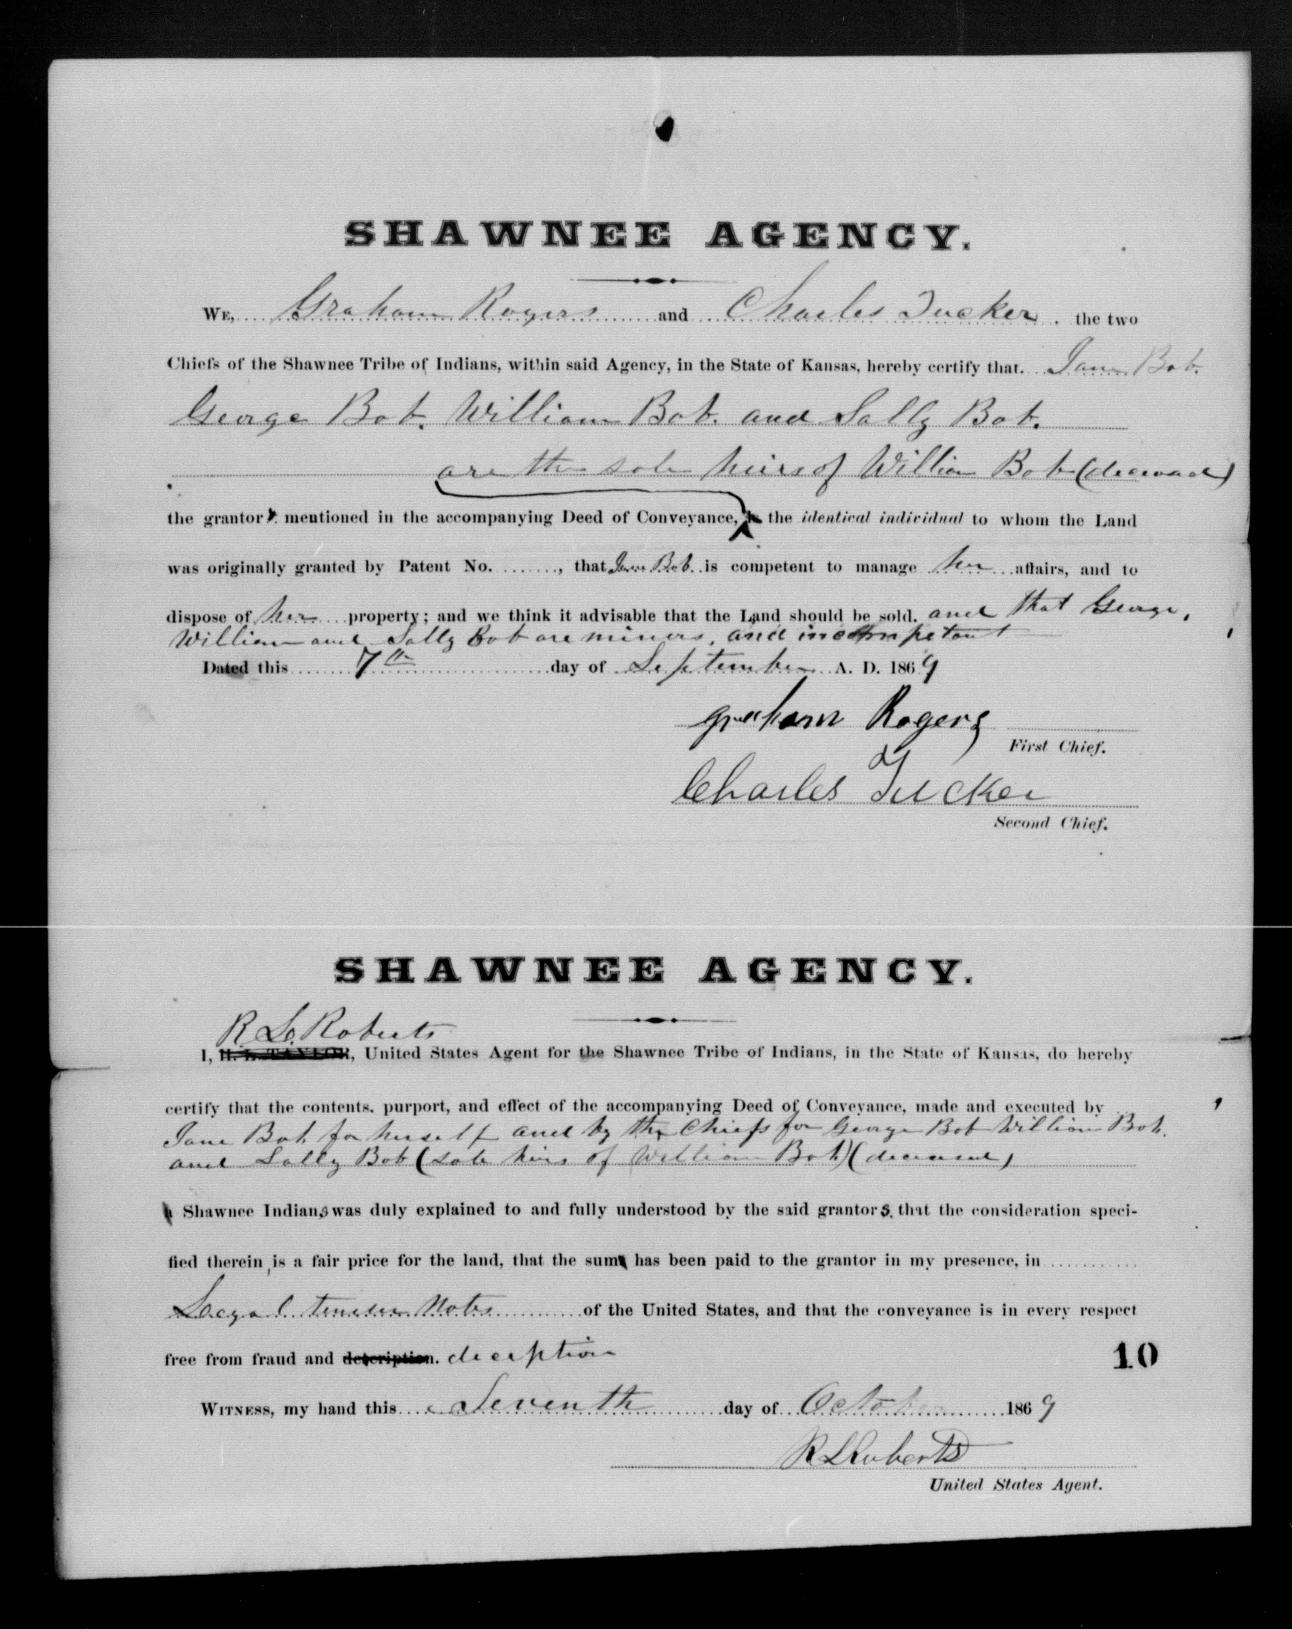 SHAWNEE AGENCY.
WE, Graham Rogers and Charles Tucker the two
Chiefs of the Shawnee Tribe of Indians, within said Agency, in the State of Kansas, hereby certify that Jane Bob.
George Bob. William Bob. and Sally Bob.
are the sole heirs of William Bob (deceased)
the grantors mentioned in the accompanying Deed of Conveyance, is the identical individual to whom the Land
was originally granted by Patent No. ......, that Jane Bob is competent to manage her affairs, and to
dispose of her property; and we think it advisable that the Land should be sold. and that George,
William and Sally Bob are minors, and incompetant
Dated this 7th day of September A. D. 1869
Graham Rogers
First Chief.
Charles Tucker
Second Chief.
SHAWNEE AGENCY.
R L Roberts
I, H. L. TAYLOR, United States Agent for the Shawnee Tribe of Indians, in the State of Kansas, do hereby
certify that the contents, purport, and effect of the accompanying Deed of Conveyance, made and executed by
Jane Bob for herself and by the Chiefs for George Bob William Bob.
and Sally Bob (sole heirs of William Bob) (deceased)
a Shawnee Indians was duly explained to and fully understood by the said grantors, that the consideration speci-
fied therein is a fair price for the land, that the sum has been paid to the grantor in my presence, in
Legal tender Notes of the United States, and that the conveyance is in every respect
free from fraud and description. deception
10
WITNESS, my hand this Seventh day of October 1869
R L Roberts
United States Agent.